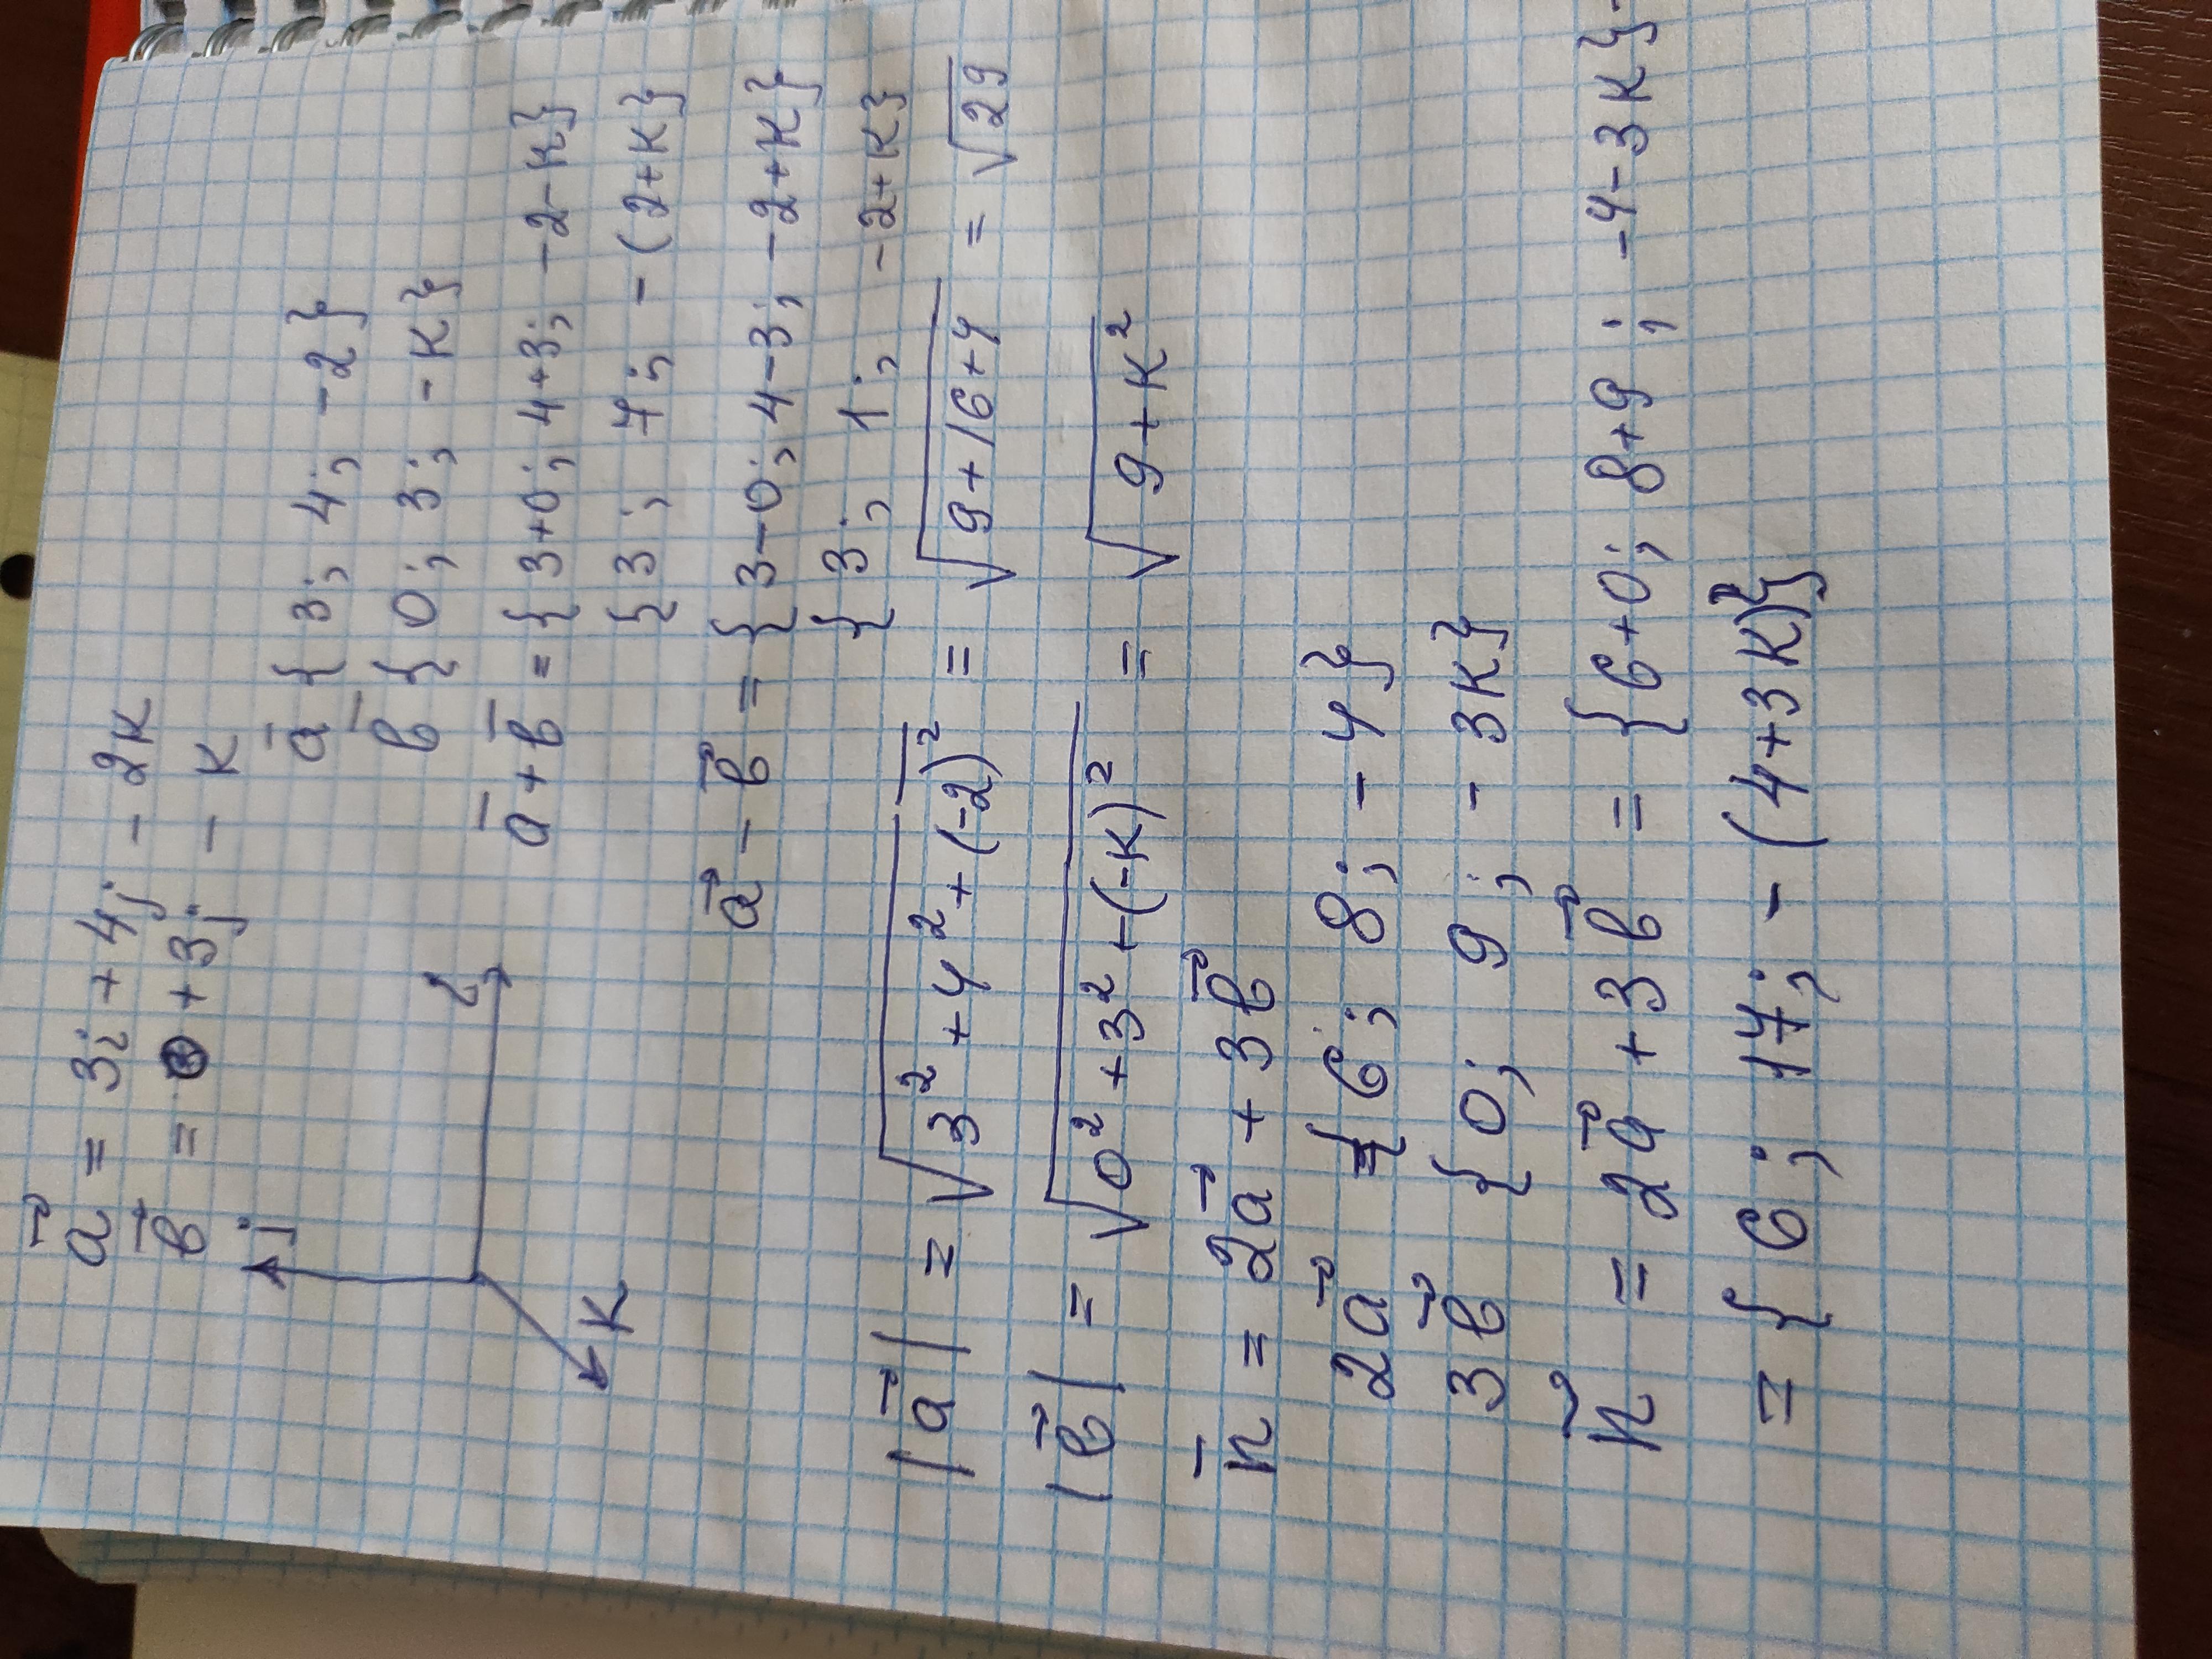 a⃗ = 3i + 4j - 2к
b̄ = 0 + 3j - к
j
i
к
ā { 3; 4; -2}
b̄ { 0; 3; -к}
ā + b̄ = { 3+0; 4+3; -2-к}
{ 3; 7; -(2+к}
a⃗ - b⃗ = { 3-0; 4-3; -2+к}
{ 3; 1; -2+к}
|a⃗| = √3² + 4² + (-2)² = √9+16+4 = √29
|b⃗| = √0² + 3² + (-к)² = √9+к²
n̄ = 2a⃗ + 3b⃗
2a⃗ = { 6; 8; -4}
3b⃗ { 0; 9; -3к}
n⃗ = 2a⃗ + 3b⃗ = {6+0; 8+9; -4-3к}=
= { 6; 17; -(4+3к)}